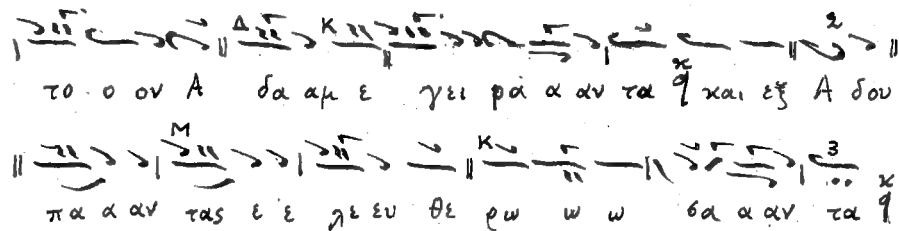 το ο ον Α δα αμ ε γει ρά α αν τα και εξ Α δου
πα α αν τας ε ε λε ευ θε ρω ω ω σα α αν τα